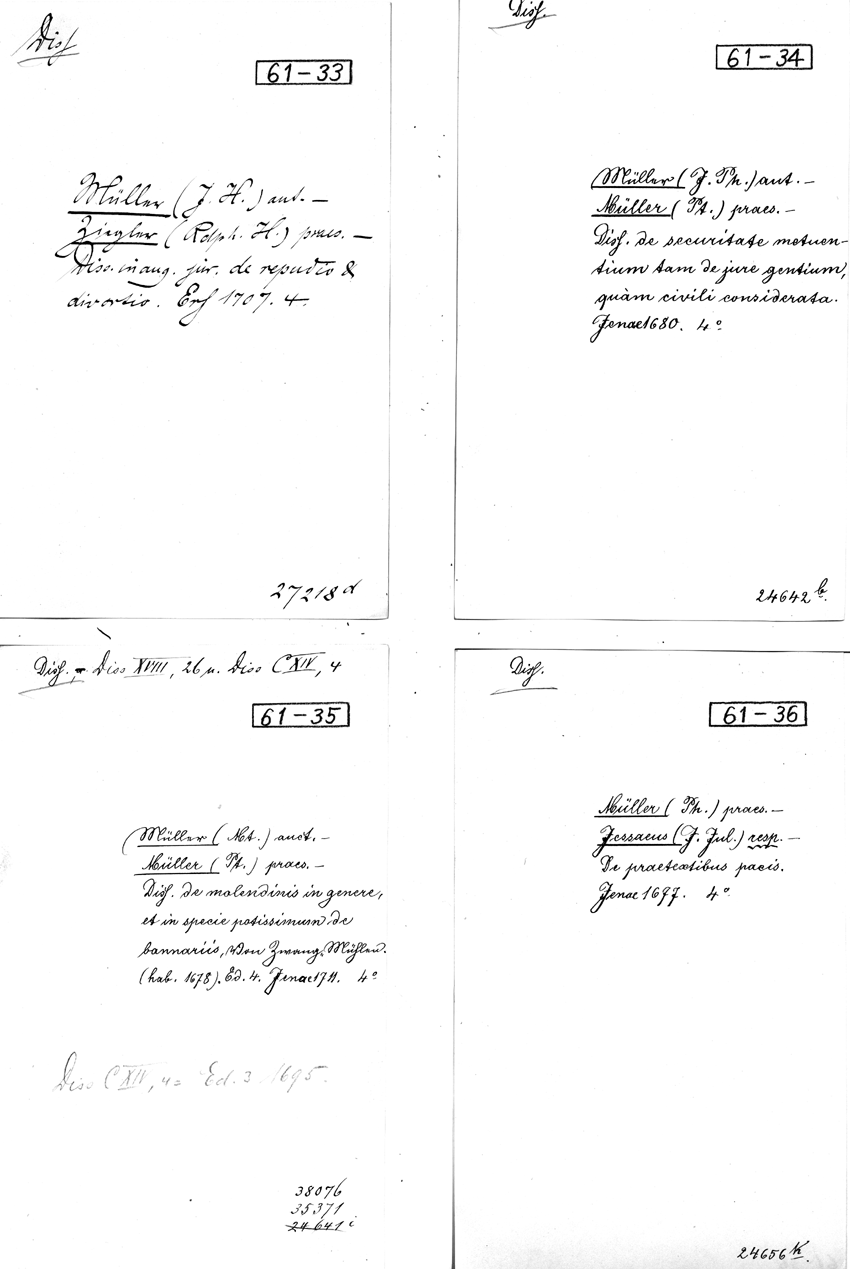 Diss
61-33
Müller (J. H.) aut. —
Ziegler (Rdph. H.) praes. —
Diss. inaug. jur. de repudio &
divortio. Erf 1707. 4.
27218 d
Diss.
61-34
Müller (J. Ph.) aut. —
Müller (Pt.) praes. —
Diss. de securitate metuen-
tium tam de jure gentium,
quàm civili considerata.
Jenae 1680. 4°
24642 b.
Diss. — Diss XVIII, 26 u. Diss CXIV, 4
61-35
Müller (Mt.) auct. —
Müller (Pt.) praes. —
Diss. de molendinis in genere,
et in specie potissimum de
bannariis, von Zwang-Mühlen.
(hab. 1678). Ed. 4. Jenae 1711. 4°
Diss CXIV, 4 = Ed. 3 1695.
38076
35371
24641 i
Diss.
61-36
Müller (Ph.) praes. —
Jessaeus (J. Jul.) resp. —
De praetextibus pacis.
Jenae 1697. 4°
24656 k.